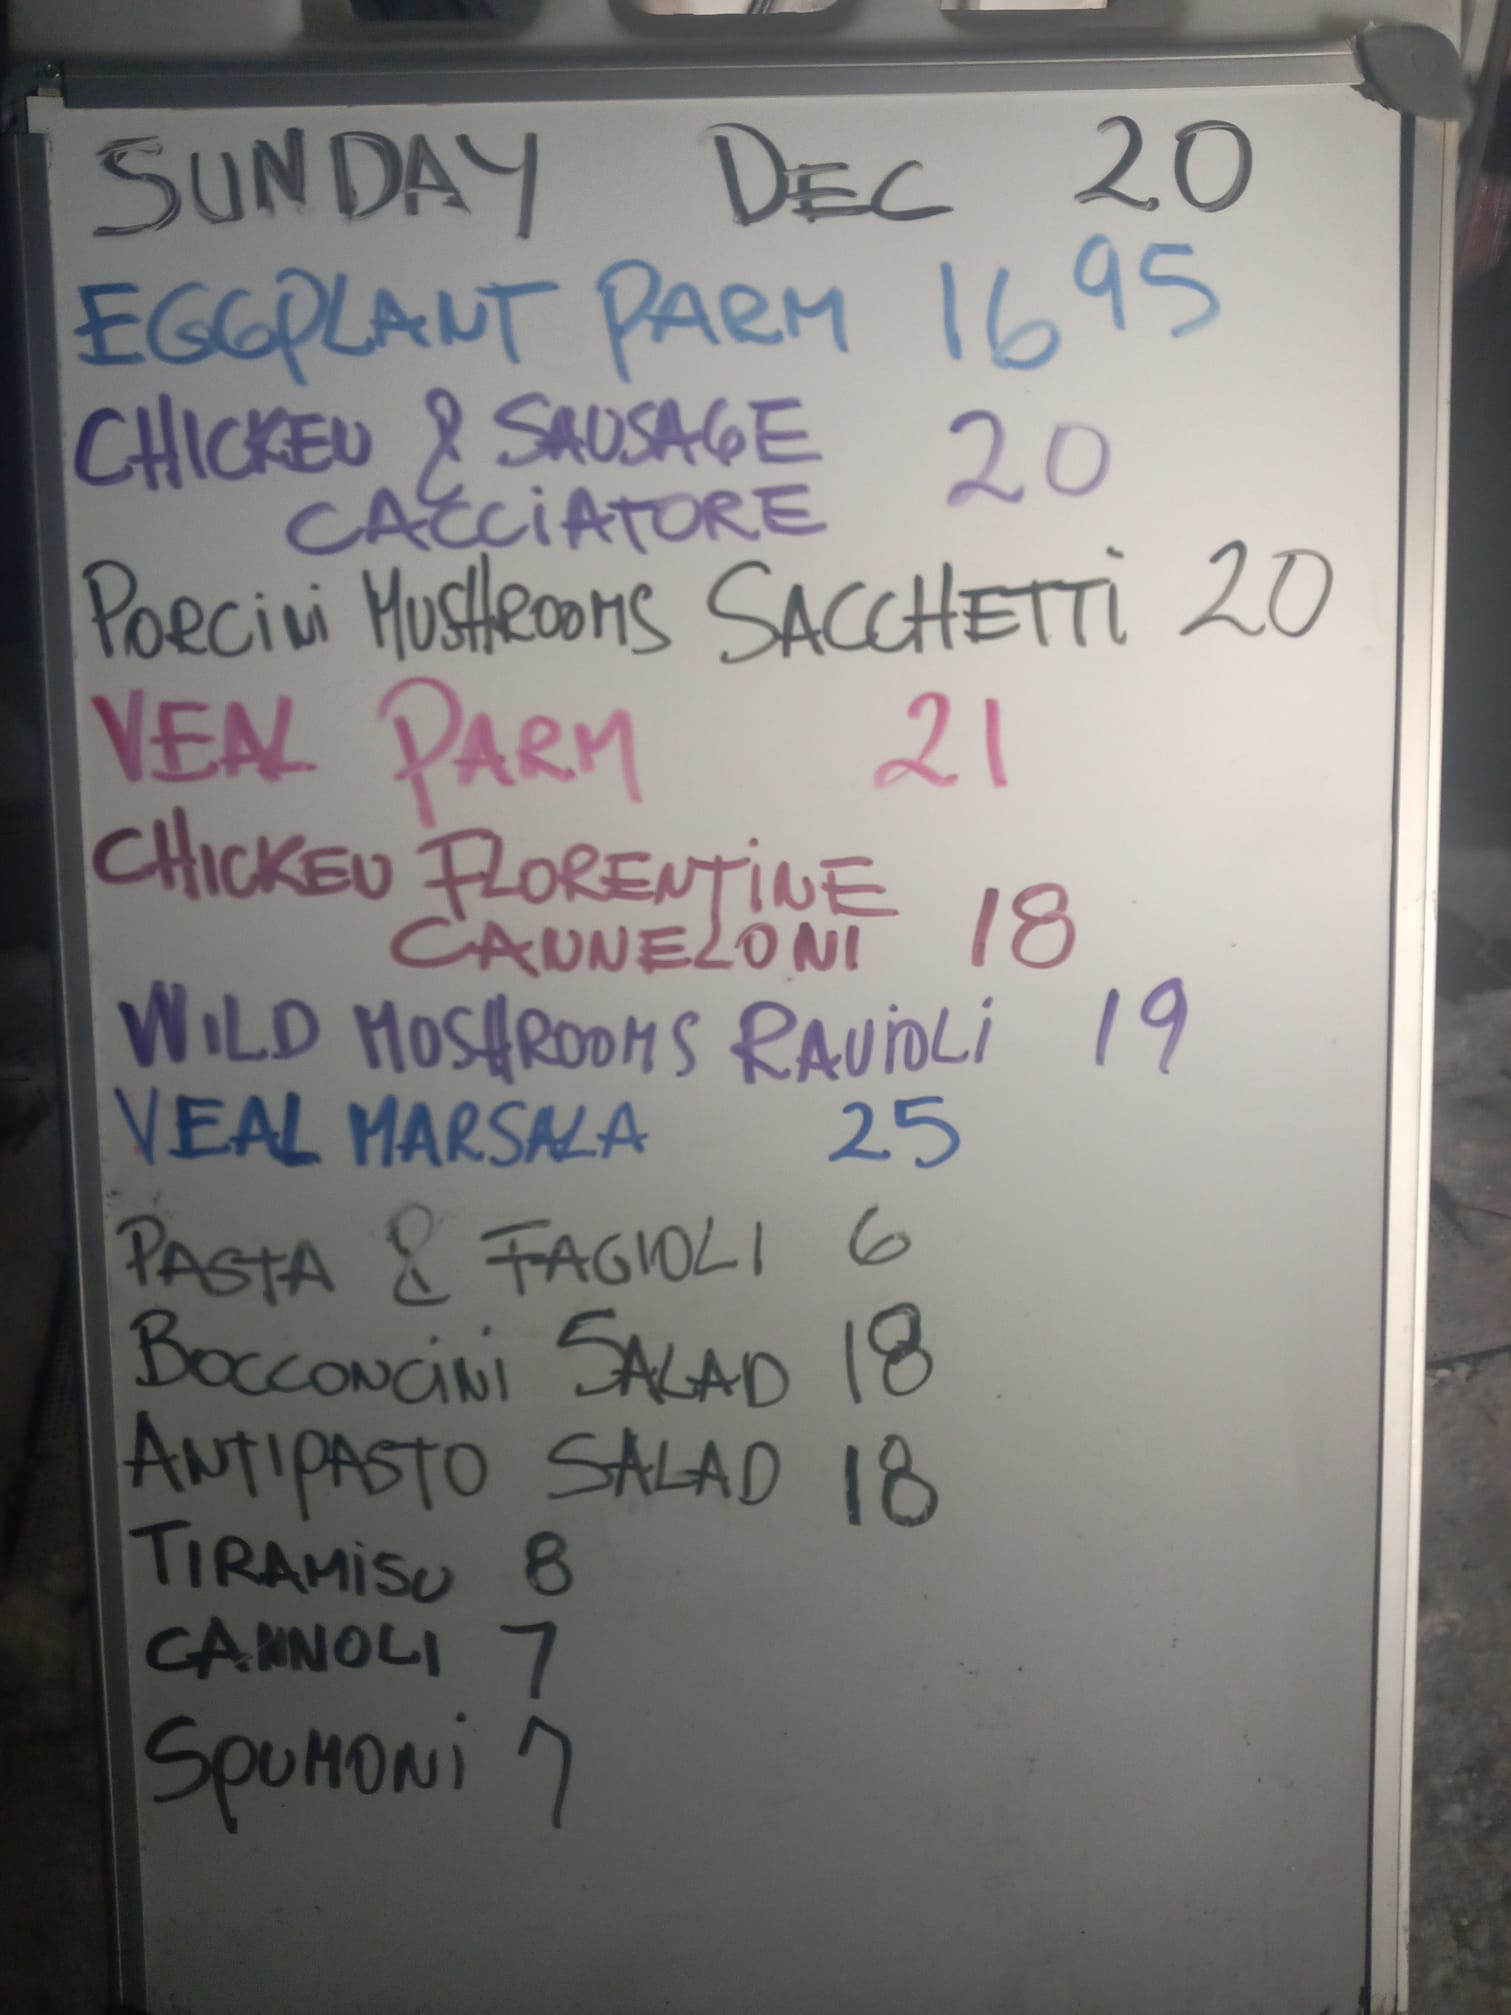 SUNDAY DEC 20
EGGPLANT PARM 16 95
CHICKEN & SAUSAGE 20
CACCIATORE
PORCINI MUSHROOMS SACCHETTI 20
VEAL PARM 21
CHICKEN FLORENTINE
CANNELONI 18
WILD MUSHROOMS RAVIOLI 19
VEAL MARSALA 25
PASTA & FAGIOLI 6
BOCCONCINI SALAD 18
ANTIPASTO SALAD 18
TIRAMISU 8
CANNOLI 7
SPUMONI 7